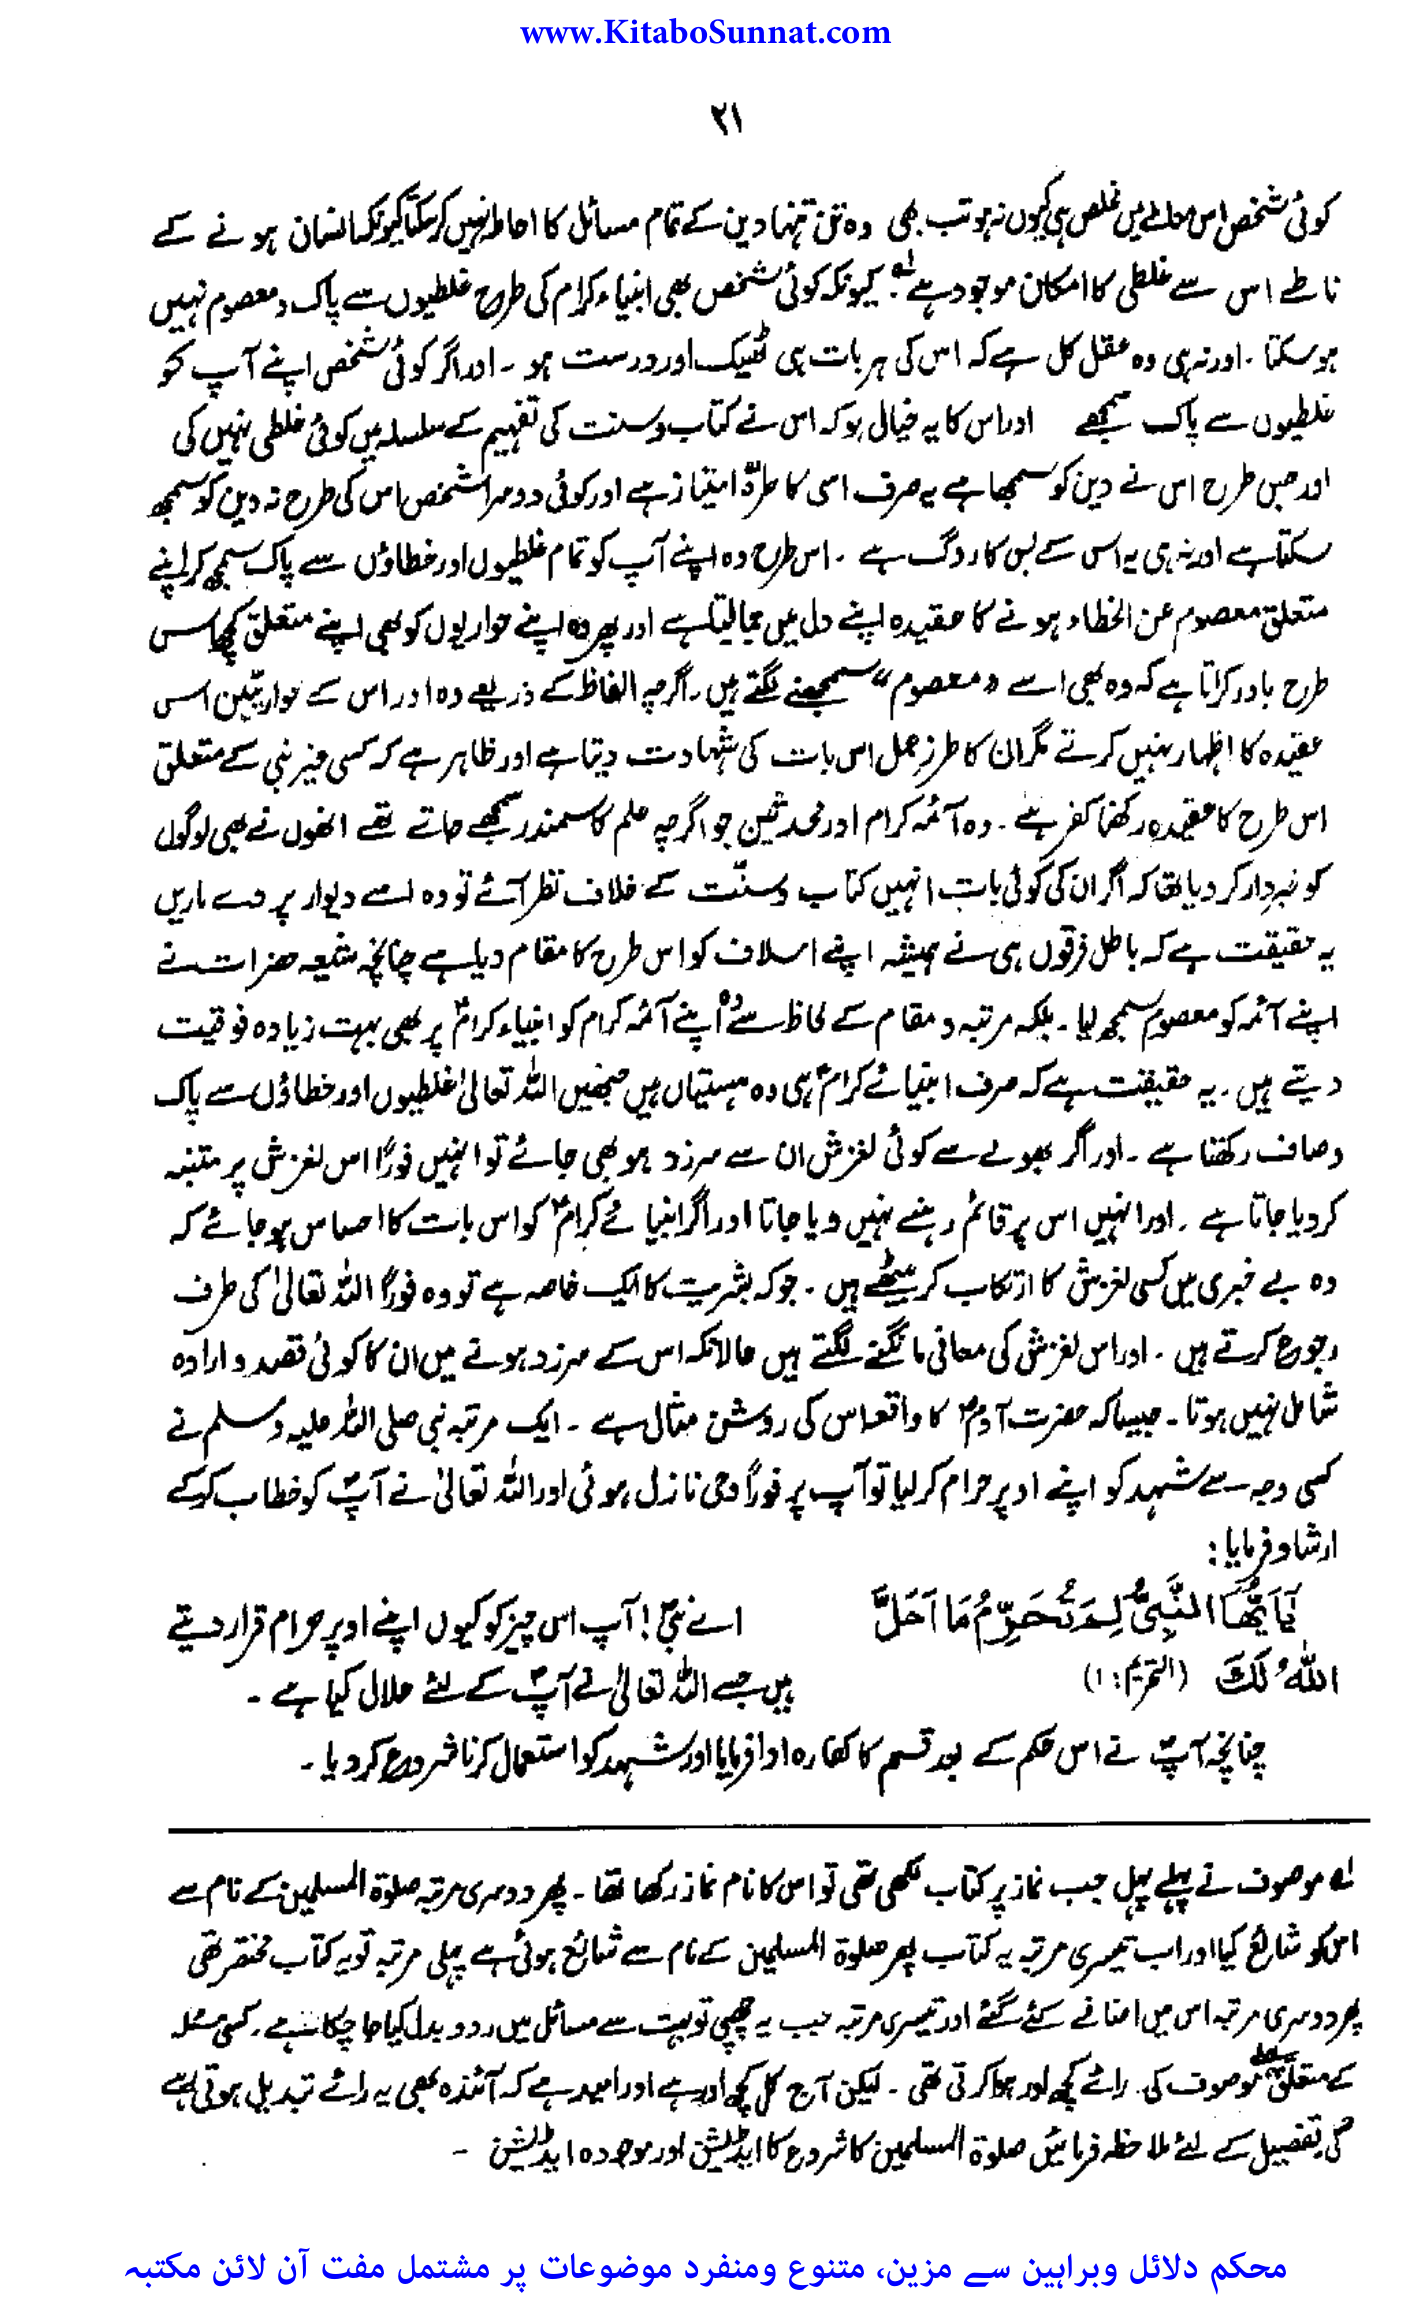 www.KitaboSunnat.com
۲۱
کوئی شخص اس معاملے میں مخلص ہی کیوں نہ ہو تب بھی وہ تن تنہا دین کے تمام مسائل کا احاطہ نہیں کر سکتا کیونکہ انسان ہونے کے
ناطے اس سے غلطی کا امکان موجود ہے لہ کیونکہ کوئی شخص بھی انبیاء کرام کی طرح غلطیوں سے پاک و معصوم نہیں
ہو سکتا ۔ اور نہ ہی وہ عقل کل ہے کہ اس کی ہر بات ہی ٹھیک اور درست ہو ۔ اور اگر کوئی شخص اپنے آپ کو
غلطیوں سے پاک سمجھے اور اس کا یہ خیال ہو کہ اس نے کتاب و سنت کی تفہیم کے سلسلہ میں کوئی غلطی نہیں کی
اور جس طرح اس نے دین کو سمجھا ہے یہ صرف اسی کا طرّہ امتیاز ہے اور کوئی دوسرا شخص اس کی طرح نہ دین کو سمجھ
سکتا ہے اور نہ ہی یہ اس کے بس کا روگ ہے ۔ اس طرح وہ اپنے آپ کو تمام غلطیوں اور خطاؤں سے پاک سمجھ کر اپنے
متعلق معصوم عن الخطاء ہونے کا عقیدہ اپنے دل میں جما لیتا ہے اور پھر وہ اپنے حواریوں کو بھی اپنے متعلق کچھ اس
طرح باور کراتا ہے کہ وہ بھی اسے "معصوم" سمجھنے لگتے ہیں ۔ اگرچہ الفاظ کے ذریعے وہ اور اس کے حواریین اس
عقیدہ کا اظہار نہیں کرتے مگر ان کا طرز عمل اس بات کی شہادت دیتا ہے اور ظاہر ہے کہ کسی غیر نبی کے متعلق
اس طرح کا عقیدہ رکھنا کفر ہے ۔ وہ آئمہ کرام اور محدثین جو اگرچہ علم کا سمندر سمجھے جاتے تھے انھوں نے بھی لوگوں
کو خبردار کر دیا تھا کہ اگر ان کی کوئی بات انہیں کتاب و سنّت کے خلاف نظر آئے تو وہ اسے دیوار پر دے ماریں
یہ حقیقت ہے کہ باطل فرقوں ہی نے ہمیشہ اپنے اسلاف کو اس طرح کا مقام دیا ہے چنانچہ شیعہ حضرات نے
اپنے آئمہ کو معصوم سمجھ لیا ۔ بلکہ مرتبہ و مقام کے لحاظ سے وہ اپنے آئمہ کرام کو انبیاء کرامؑ پر بھی بہت زیادہ فوقیت
دیتے ہیں ۔ یہ حقیقت ہے کہ صرف انبیائے کرامؑ ہی وہ ہستیاں ہیں جنھیں اللہ تعالیٰ غلطیوں اور خطاؤں سے پاک
و صاف رکھتا ہے ۔ اور اگر بھولے سے کوئی لغزش ان سے سرزد ہو بھی جائے تو انہیں فوراً اس لغزش پر متنبہ
کر دیا جاتا ہے ۔ اور انہیں اس پر قائم رہنے نہیں دیا جاتا اور اگر انبیائے کرامؑ کو اس بات کا احساس ہو جائے کہ
وہ بے خبری میں کسی لغزش کا ارتکاب کر بیٹھے ہیں ۔ جو کہ بشریت کا ایک خاصہ ہے تو وہ فوراً اللہ تعالیٰ کی طرف
رجوع کرتے ہیں ۔ اور اس لغزش کی معافی مانگنے لگتے ہیں حالانکہ اس کے سرزد ہونے میں ان کا کوئی قصد و ارادہ
شامل نہیں ہوتا ۔ جیسا کہ حضرت آدمؑ کا واقعہ اس کی روشن مثال ہے ۔ ایک مرتبہ نبی صلی اللہ علیہ وسلم نے
کسی وجہ سے شہد کو اپنے اوپر حرام کر لیا تو آپ پر فوراً وحی نازل ہوئی اور اللہ تعالیٰ نے آپؐ کو خطاب کر کے
ارشاد فرمایا :
یَاَیُّھَا النَّبِیُّ لِمَ تُحَرِّمُ مَا اَحَلَّ اے نبیؐ ! آپ اس چیز کو کیوں اپنے اوپر حرام قرار دیتے
اللّٰہُ لَکَ (التحریم : ۱) ہیں جسے اللہ تعالیٰ نے آپؐ کے لئے حلال کیا ہے ۔
چنانچہ آپؐ نے اس حکم کے بعد قسم کا کفارہ ادا فرمایا اور شہد کو استعمال کرنا شروع کر دیا ۔
لہ موصوف نے پہلے پہل جب نماز پر کتاب لکھی تھی تو اس کا نام نماز رکھا تھا ۔ پھر دوسری مرتبہ صلوۃ المسلمین کے نام سے
اس کو شائع کیا اور اب تیسری مرتبہ یہ کتاب پھر صلوۃ المسلمین کے نام سے شائع ہوئی ہے پہلی مرتبہ تو یہ کتاب مختصر تھی
پھر دوسری مرتبہ اس میں اضافے کئے گئے اور تیسری مرتبہ جب یہ چھپی تو بہت سے مسائل میں ردوبدل کیا جا چکا ہے ۔ کسی مسئلہ
کے متعلق پہلے موصوف کی رائے کچھ اور ہوا کرتی تھی ۔ لیکن آج کل کچھ اور ہے اور امید ہے کہ آئندہ بھی یہ رائے تبدیل ہوتی رہے
گی تفصیل کے لئے ملاحظہ فرمائیں صلوۃ المسلمین کا شروع کا ایڈیشن اور موجودہ ایڈیشن ۔
محکم دلائل وبراہین سے مزین، متنوع ومنفرد موضوعات پر مشتمل مفت آن لائن مکتبہ